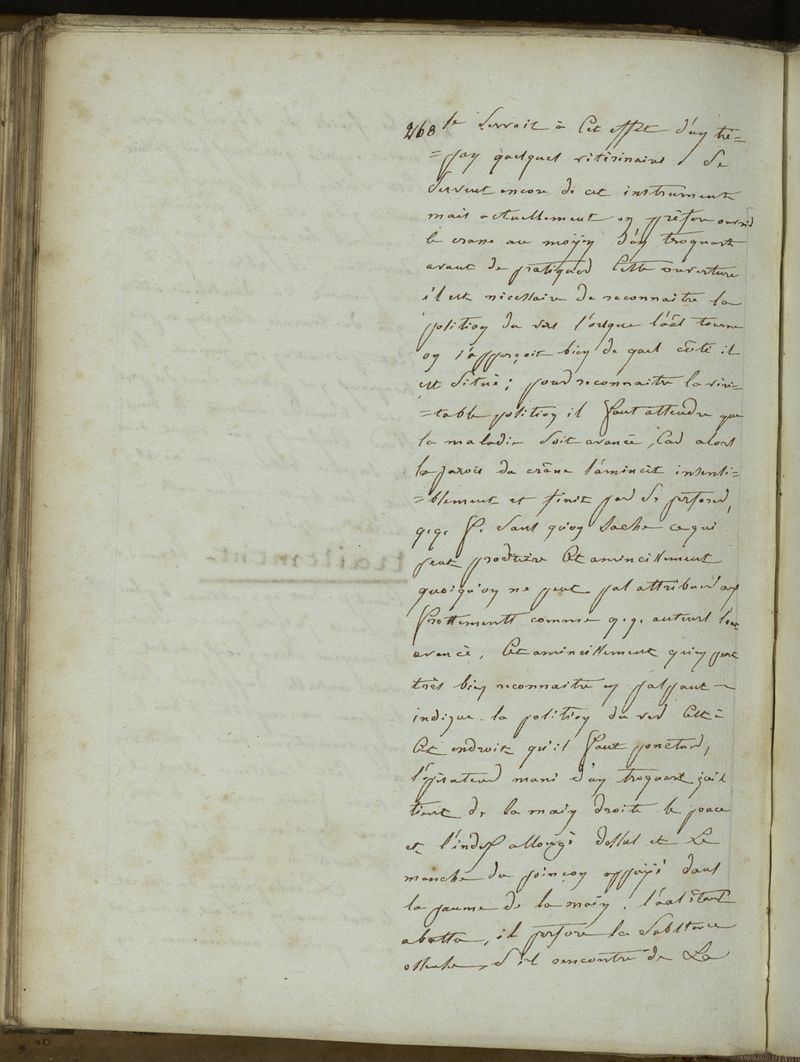 268 se servoit à cet effet d'un tré-
=pan quelques vétérinaires se
servent encore de cet instrument
mais actuellement on préfere ouvrir
le crane au moÿen d'un troquart
avant de pratiquer cette ouverture
il est nécessaire de reconnaitre la
position du vers l'orsque l'aâl tourne
on s'apperçoit bien de quel côté il
est situé ; pour reconnaitre la véri-
=table position il faut attendre que
la maladie soit avancée, car alors
la parois du crâne s'amincit insensi=
=blement et finit par se perforer,
q.q. f.s sans qu'on sache ce qui
peut produire cet amincissement
quoiqu'on ne peut pas attribuer aux
frottements comme q.q. auteurs l'ont
avancé, cet amincissement qu'on peut
très bien reconnaitre en palpant
indique la position du ver c'est à
cet endroit qu'il faut ponctuer,
l'opérateur muni d'un troquart qu'il
tient de la main droite le pouce
et l'index allongé dessus et le
manche du poinçon appuÿé dans
la paume de la main, l'aâl étant
abattu, il perfore la substance
osseuse, s'il rencontre de la
traitement